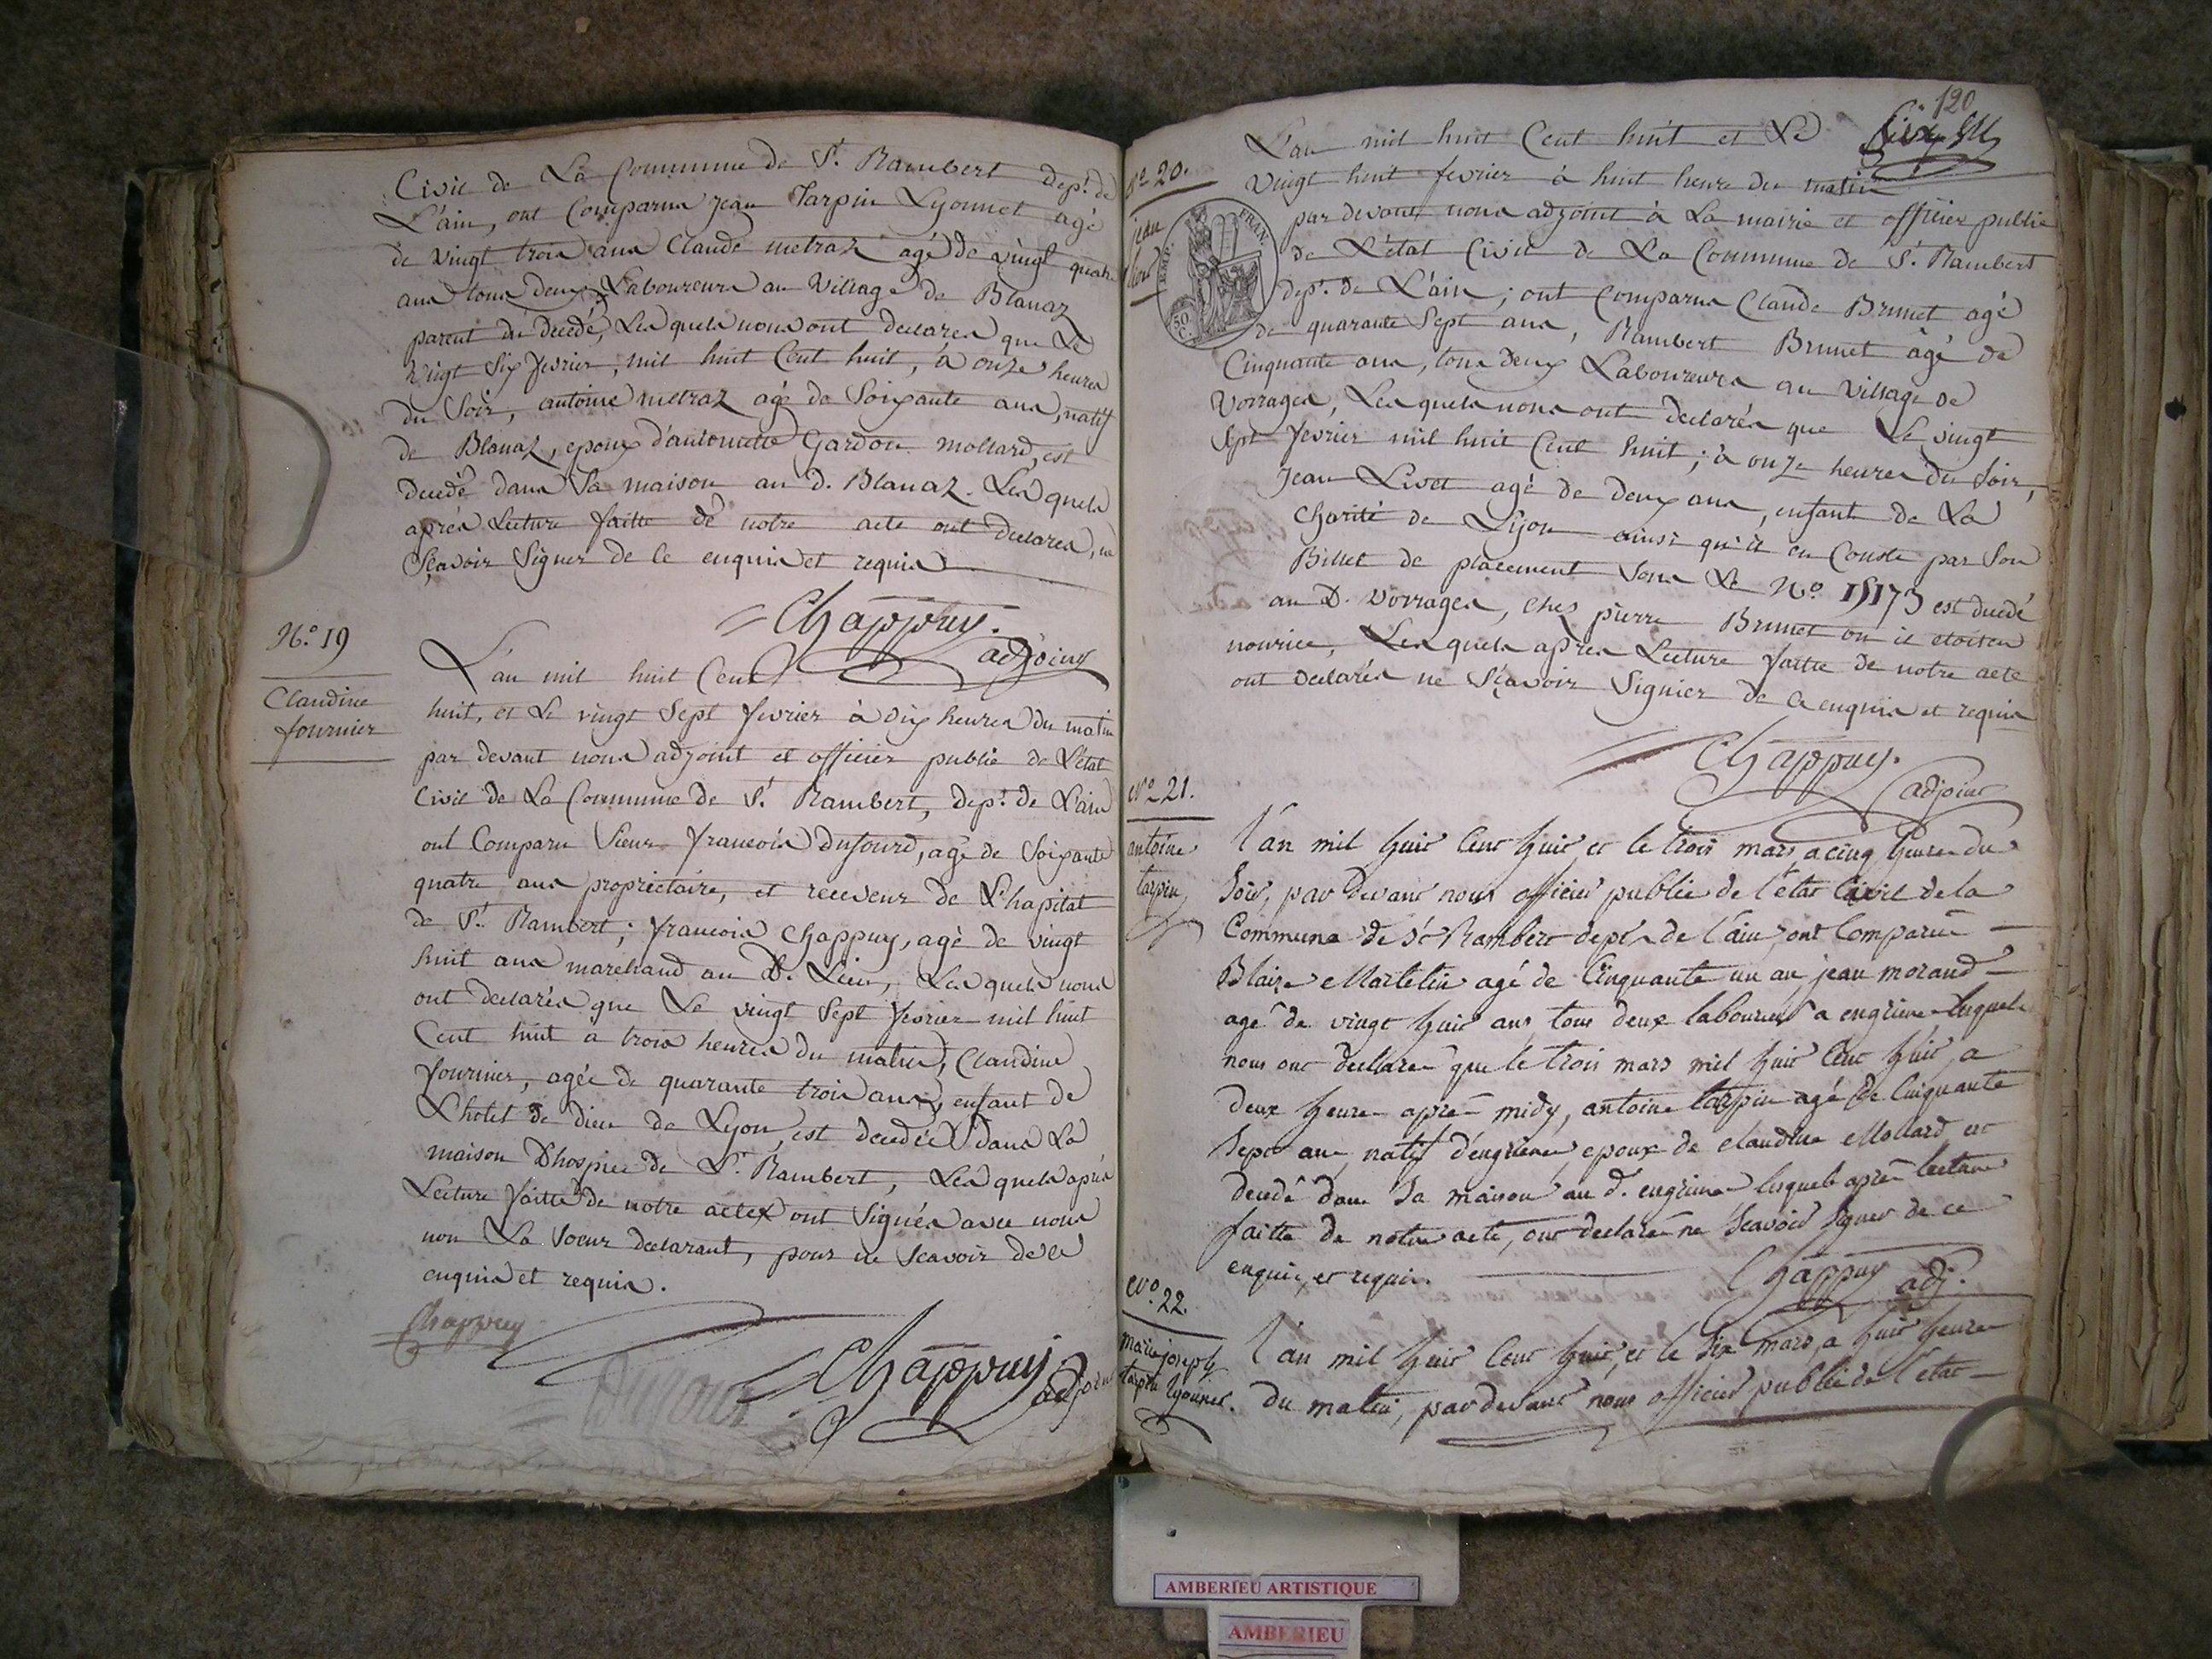 Civil de La Commune de St. Rambert dept. de
L'ain, ont Comparus jean Tarpin Lyonnet agé
de vingt trois ans Claude metraz agé de vingt quatre
ans tous deux Laboureurs au village de Blanaz
parent du decedé, Lesquels nous ont declarés que Le
vingt Six fevrier, mil huit Cent huit, à onze heures
du Soir, antoine metraz agé de Soixante ans, natif
de Blanaz, epoux d'antoinette Gardon mollard, est
decedé dans Sa maison au d. Blanaz. Lesquels
aprés Lecture faitte de notre acte ont declarés, ne
Sçavoir Signer de ce enquis et requis
Chappuy.
adjoint
No. 19
Claudine
fournier
L'an mil huit Cent
huit, et Le vingt Sept fevrier à dix heures du matin
par devant nous adjoint et officier public de L'état
Civil de La Commune de St. Rambert, dept. de L'ain
ont Comparu Sieur francois Dufourd, agé de Soixante
quatre ans proprietaire, et receveur de L'hapital
de St. Rambert; francois Chappuy, agé de vingt
huit ans marchand au D. Lieu, Lesquels nous
ont declarés que Le vingt Sept fevrier mil huit
Cent huit a trois heures du matin, Claudine
fournier, agée de quarante trois ans, enfant de
L'hotel de dieu de Lyon, est decedée dans La
maison D'hospice de St. Rambert, Lesquels aprés
Lecture faitte de notre acte ont Signés avec nous
non La Soeur declarant, pour ne Scavoir de ce
enquis et requis.
Chappuy
Dufour
Chappuy
adjoint
120
L'an mil huit Cent huit et Le
No. 20.
jean
Livet
vingt huit fevrier à huit heure du matin
par devant nous adjoint à La mairie et officier public
de L'état Civil de La Commune de St. Rambert
dept. de L'ain; ont Comparus Claude Brunet agé
de quarante Sept ans, Rambert Brunet âgé de
Cinquante ans, tous deux Laboureurs au village de
Vorrages, Lesquels nous ont declarés que Le vingt
Sept fevrier mil huit Cent huit; à onze heures du Soir,
Jean Livet agé de deux ans, enfant de La
Charité de Lyon ainsi qu'il en Conste par Son
Billet de placement Sous Le No. 15173 est decedé
au D. Vorrages, chez pierre Brunet ou il etoit en
nourice, Lesquels aprés Lecture faitte de notre acte
ont declarés ne Sçavoir Signier de ce enquis et requis
Chappuy.
adjoint
No. 21.
antoine
tarpin
l'an mil huit Cent huit, et le trois mars, a cinq heures du
Soir, par devant nous officier public de l'état Civil de la
Commune de St Rambert dept. de l'ain, ont Comparus
Blaise Martelin agé de Cinquante un an, jean morand
agé de vingt huit ans tous deux laboureurs a engrieve lesquels
nous ont declaré que le trois mars mil huit Cent huit, a
deux heures aprés midy, antoine tarpin agé de Cinquante
Sept ans, natif d'engrieve epoux de claudine Mollard est
decedé dans Sa maison au d. engrieve lesquels aprés lecture
faitte de notre acte, ont declaré ne Scavoir Signer de ce
enquis, et requis.
Chappuy adj.
No. 22.
marie joseph
tarpin lyonnet.
l'an mil huit Cent huit, et le Six mars, a huit heures
du matin, par devant nous officier public de l'état
IMP. FRAN.
50 C.
AMBERIEU ARTISTIQUE
AMBERIEU